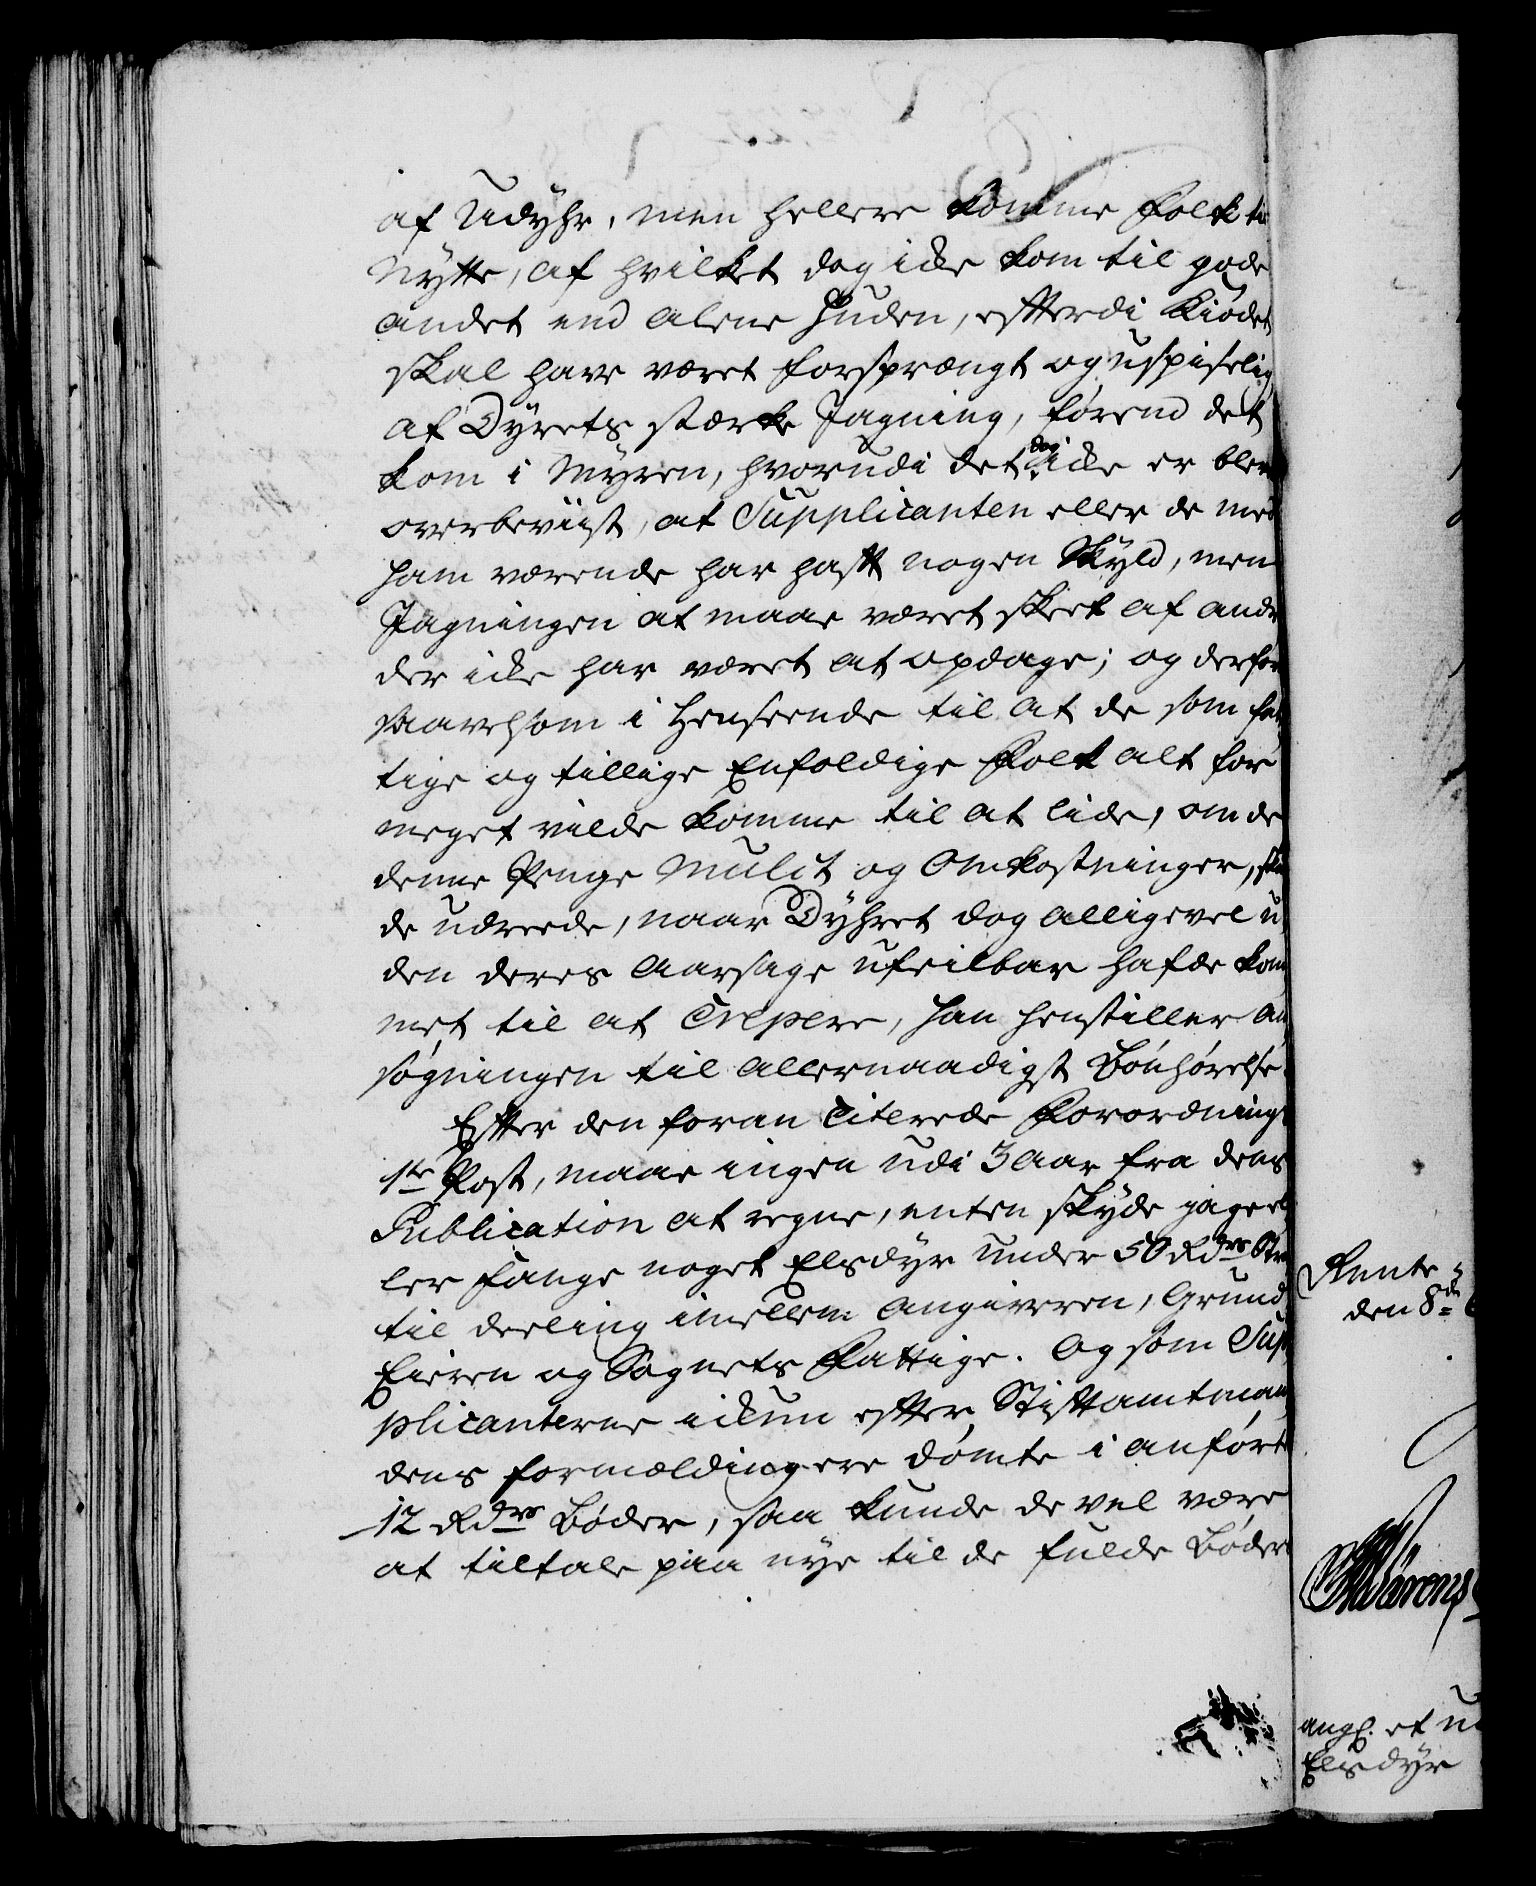 af Udyhr, men hellere komme Folk til
Nytte, af hvilket dog icke kom til gode
andet end alene Huden, efterdi Kiødet
skal have været forsprængt og uspiselig
af Dyrets stærke Jagning, førend det
kom i Myren, hvorudi det dog icke er blev
overbeviist, at Supplicanten eller de med
ham værende har haft nogen Skyld, men
Jagningen at maae været skeet af andr
der icke har været at opdage; og derfor
saavelsom i Henseende til at de som fat
tige og tillige Enfoldige Folk alt for
meget vilde komme til at lide, om de
denne Penge Mulct og Omkostninger, skul
de udreede, naar Dyhret dog alligevel u
den deres Aarsage ufeilbar hafde kom
met til at Crepere, han henstiller An
søgningen til allernaadigst Bønhørelse.
Efter den foran Citerede Forordnings
1te Post, maae ingen udi 3 Aar fra dens
Publication at regne, enten skyde jage el
ler fange noget Elsdyr under 50 Rdrs Stra
til deeling imellem Angiveren, Grund
Eieren og Sognets Fattige. Og som Sup
plicanterne ickun efter Stiftamtman
dens formælding ere dømte i anført
12 Rdrs Bøder, saa kunde de vel være
at tiltale paa nye til de fulde Bøder
Rente-
den 8de
ang. et
Elsdyr